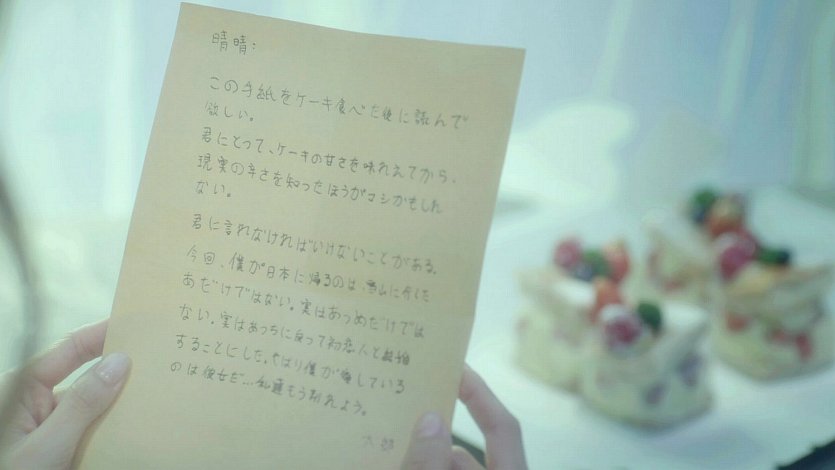 晴晴:
この手紙をケーキ食べた後に読んで
欲しい。
君にとって、ケーキの甘さを味れえてから、
現実の辛さを知ったほうがマシかもしれ
ない。
君に言れなければいけないことがある。
今回、僕が日本に帰るのは
あだけではない。実はあっめだけでは
ない。実はあっちに戻って初恋人と結婚
することにした。やはり僕が愛している
のは彼女だ...私達もう別れよう。